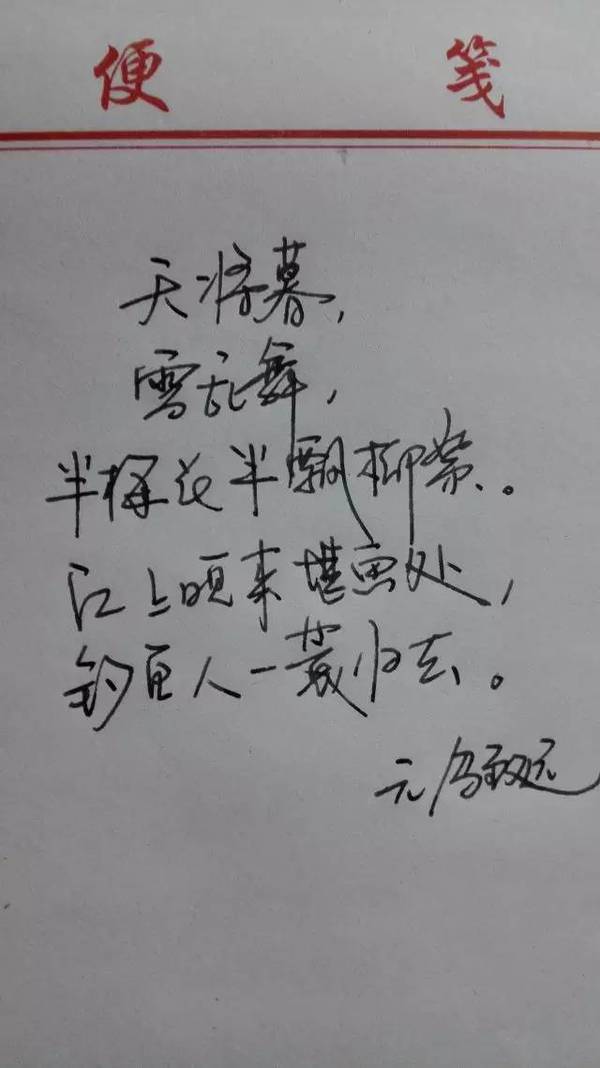 便 笺
天将暮，
雪乱舞，
半梅花半飘柳絮。
江上晚来堪画处，
钓鱼人一蓑归去。
元 马致远